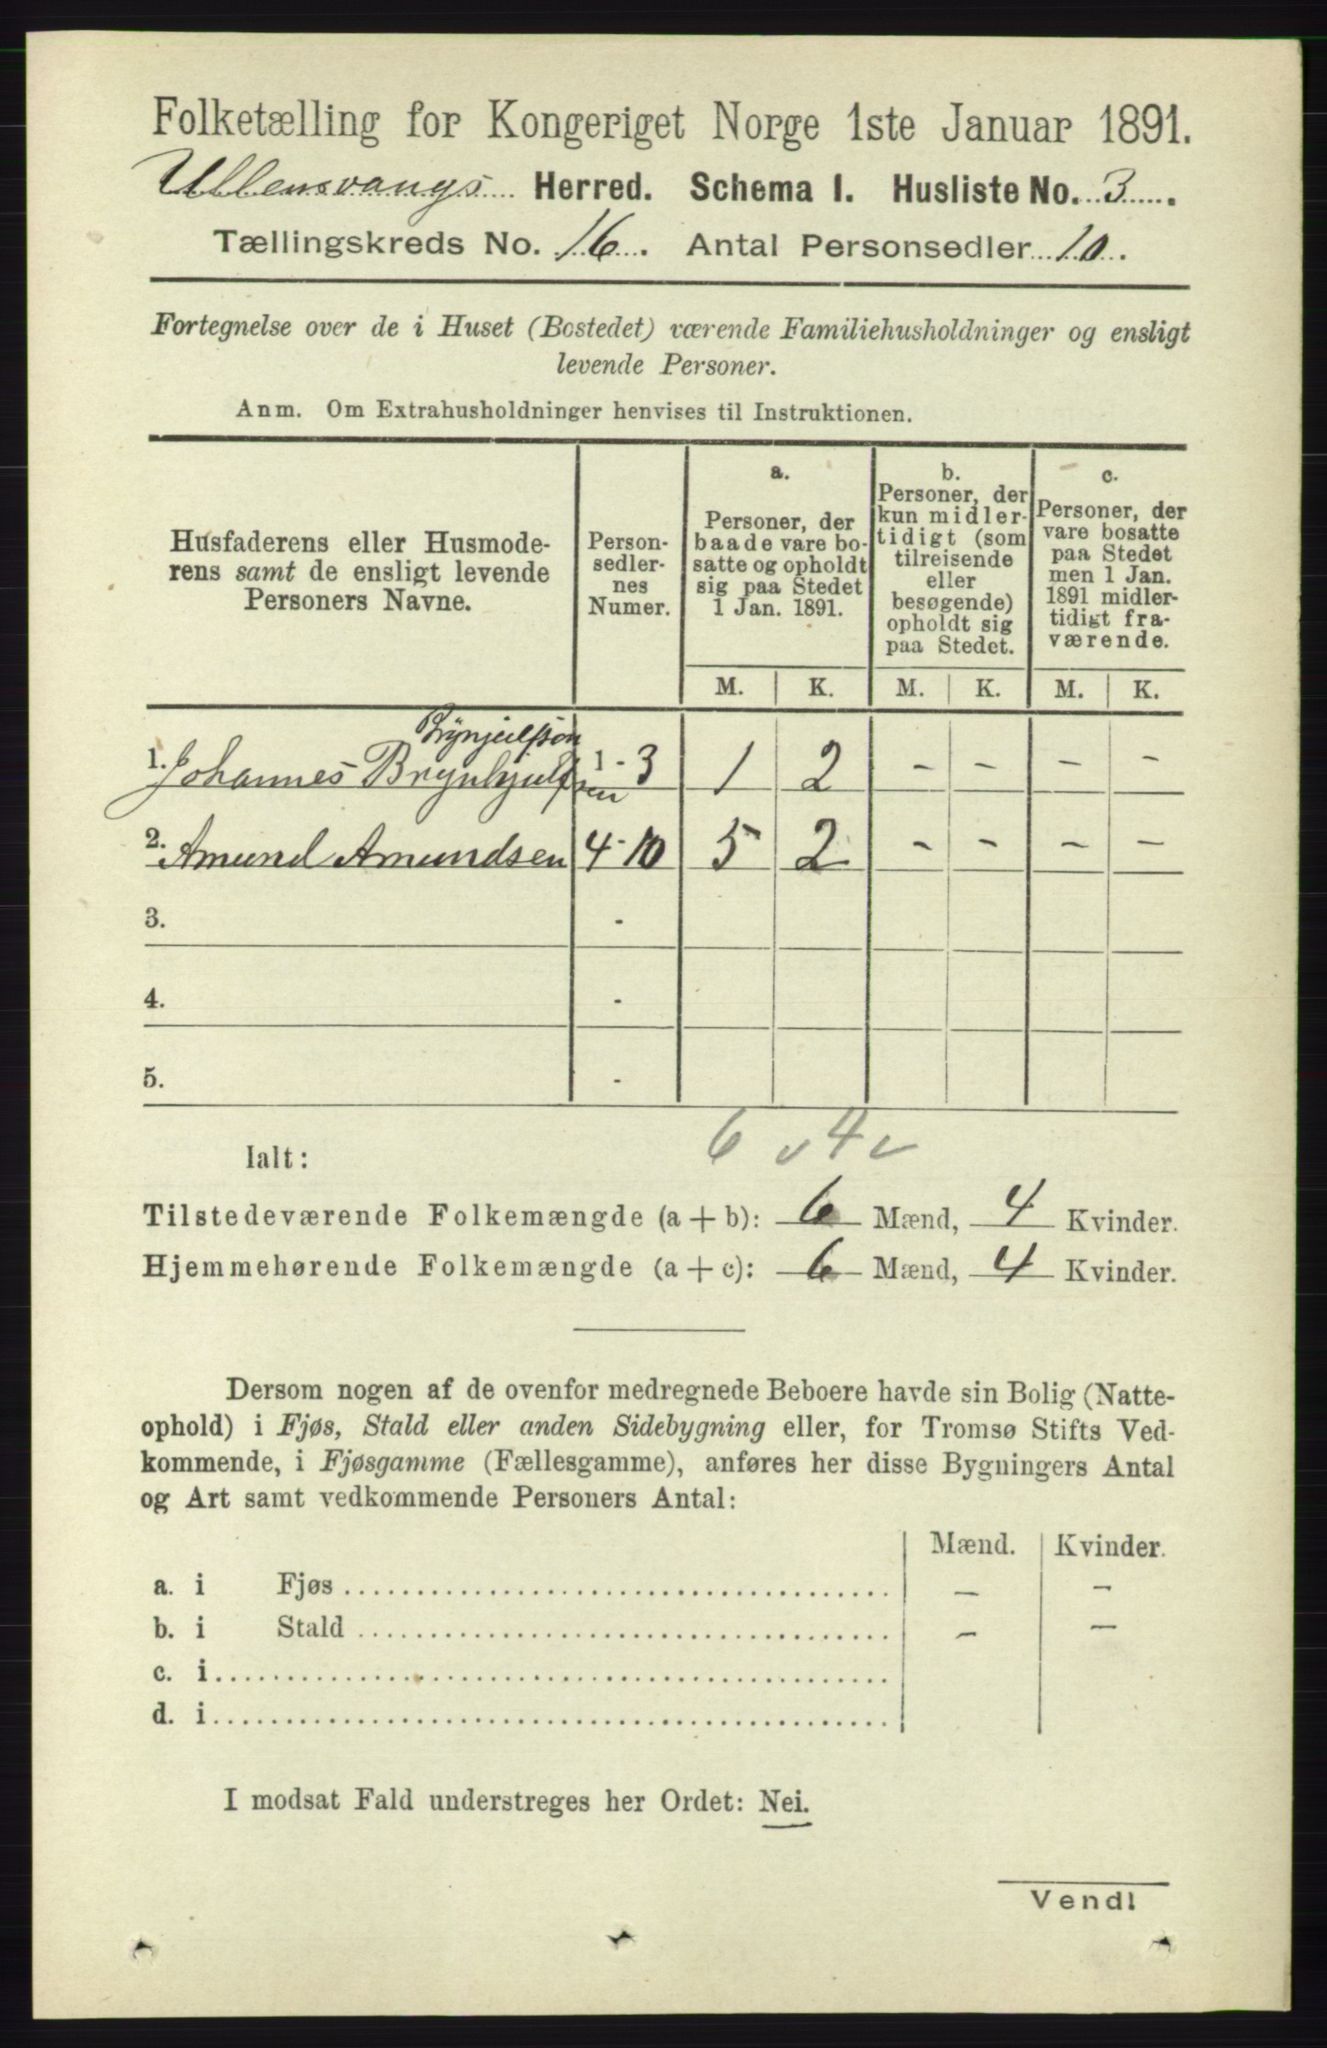 Folketælling for Kongeriget Norge 1ste Januar 1891.
Ullensvangs Herred. Schema I. Husliste No. 3
Tællingskreds No. 16. Antal Personsedler 10.
Fortegnelse over de i Huset (Bostedet) værende Familiehusholdninger og ensligt
levende Personer.
Anm. Om Extrahusholdninger henvises til Instruktionen.
Husfaderens eller Husmode-
rens samt de ensligt levende
Personers Navne.
Person-
sedler-
nes
Numer.
a.
Personer, der
baade vare bo-
satte og opholdt
sig paa Stedet
1 Jan. 1891.
b.
Personer, der
kun midler-
tidigt (som
tilreisende
eller
besøgende)
opholdt sig
paa Stedet.
c.
Personer, der
vare bosatte
paa Stedet
men 1 Jan.
1891 midler-
tidigt fra-
værende.
M. K. M. K. M. K.
Brynjulfson
1. Johannes Brynhjulfsen 1-3 1 2 - - - -
2. Amund Amundsen 4-10 5 2 - - - -
3. -
4. -
5. -
6 v 4 v
Ialt:
Tilstedeværende Folkemængde (a + b): 6 Mænd, 4 Kvinder.
Hjemmehørende Folkemængde (a + c): 6 Mænd, 4 Kvinder.
Dersom nogen af de ovenfor medregnede Beboere havde sin Bolig (Natte-
ophold) i Fjøs, Stald eller anden Sidebygning eller, for Tromsø Stifts Ved-
kommende, i Fjøsgamme (Fællesgamme), anføres her disse Bygningers Antal
og Art samt vedkommende Personers Antal:
Mænd. Kvinder.
a. i Fjøs - -
b. i Stald - -
c. i
d. i
I modsat Fald understreges her Ordet: Nei.
Vend!